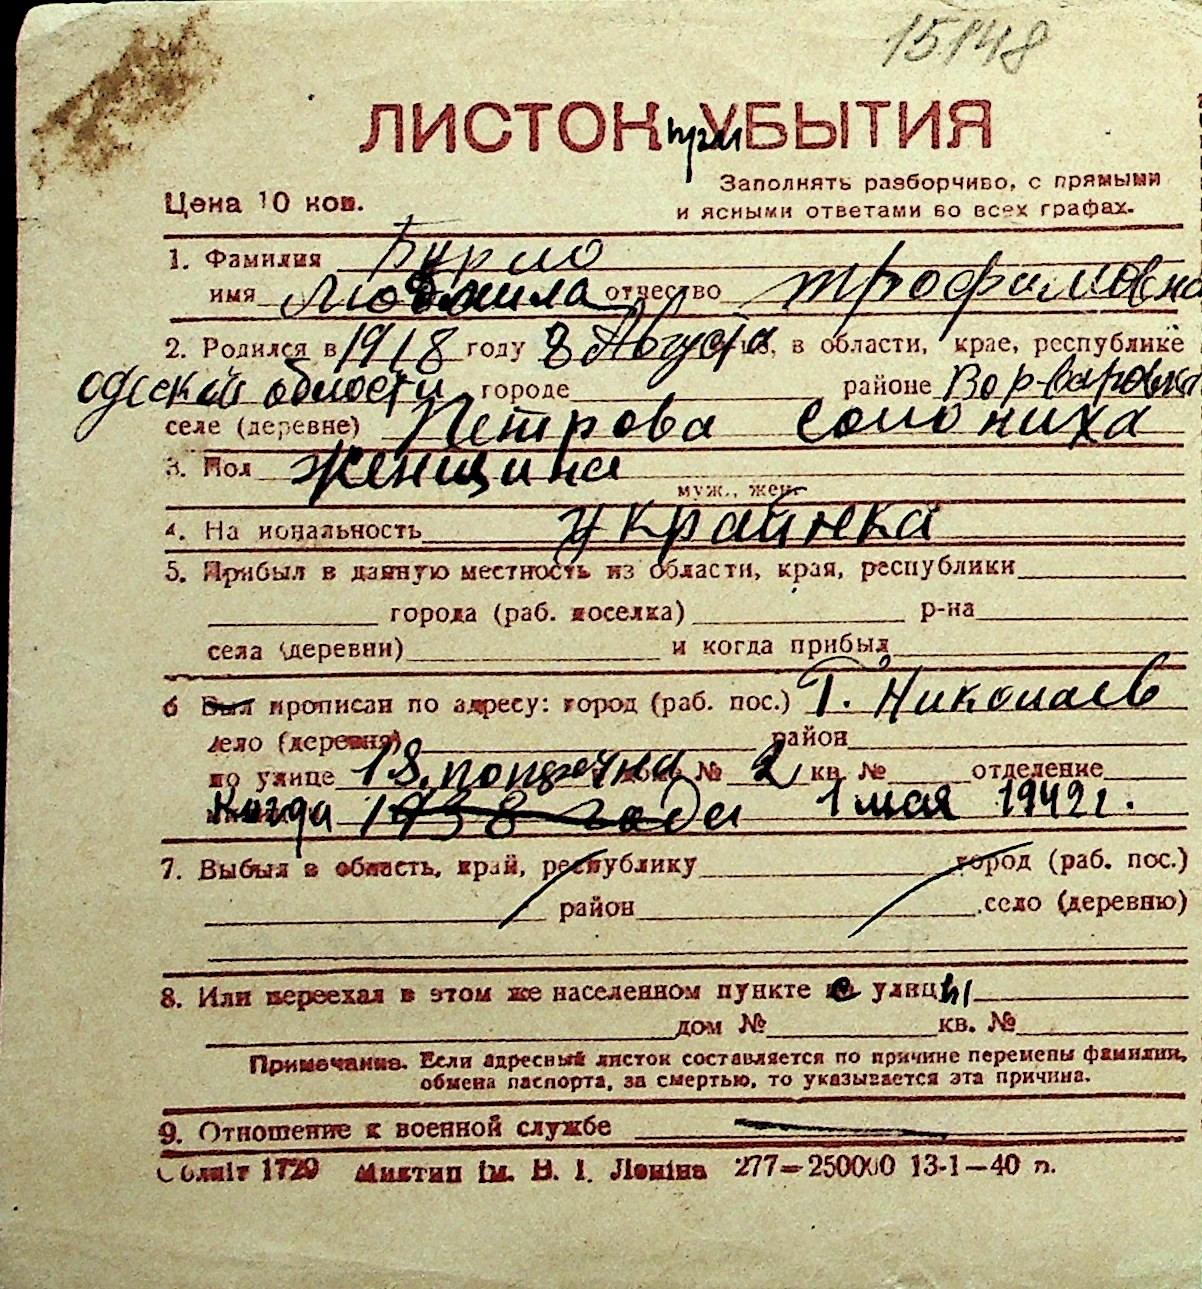 15148
ЛИСТОК УБЫТИЯ
Цена 10 коп.
Заполнять разборчиво, с прямыми
и ясными ответами во всех графах.
1. Фамилия Бурло
имя Людмила отчество Трофимовна
2. Родился в 1918 году 8 Августа, в области, крае, республике
одеской области городе районе Ворваровка
селе (деревне) Петрова солониха
3. Пол женщина
муж., жен.
4. На иональность украйнка
5. Прибыл в данную местность из области, края, республики
города (раб. поселка) р-на
села (деревни) и когда прибыл
6 Был прописан по адресу: город (раб. пос.) Г. Николаев
село (деревня) район
по улице 18 попречна № 2 кв. № отделение
Когда 1938 года 1 мая 1942 г.
7. Выбыл в область, край, республику город (раб. пос.)
район село (деревню)
8. Или переехал в этом же населенном пункте с улицы
дом № кв. №
Примечание. Если адресный листок составляется по причине перемены фамилии,
обмена паспорта, за смертью, то указывается эта причина.
9. Отношение к военной службе
Облліт 1729 Миктип ім. В. І. Леніна 277—250000 13-1—40 п.